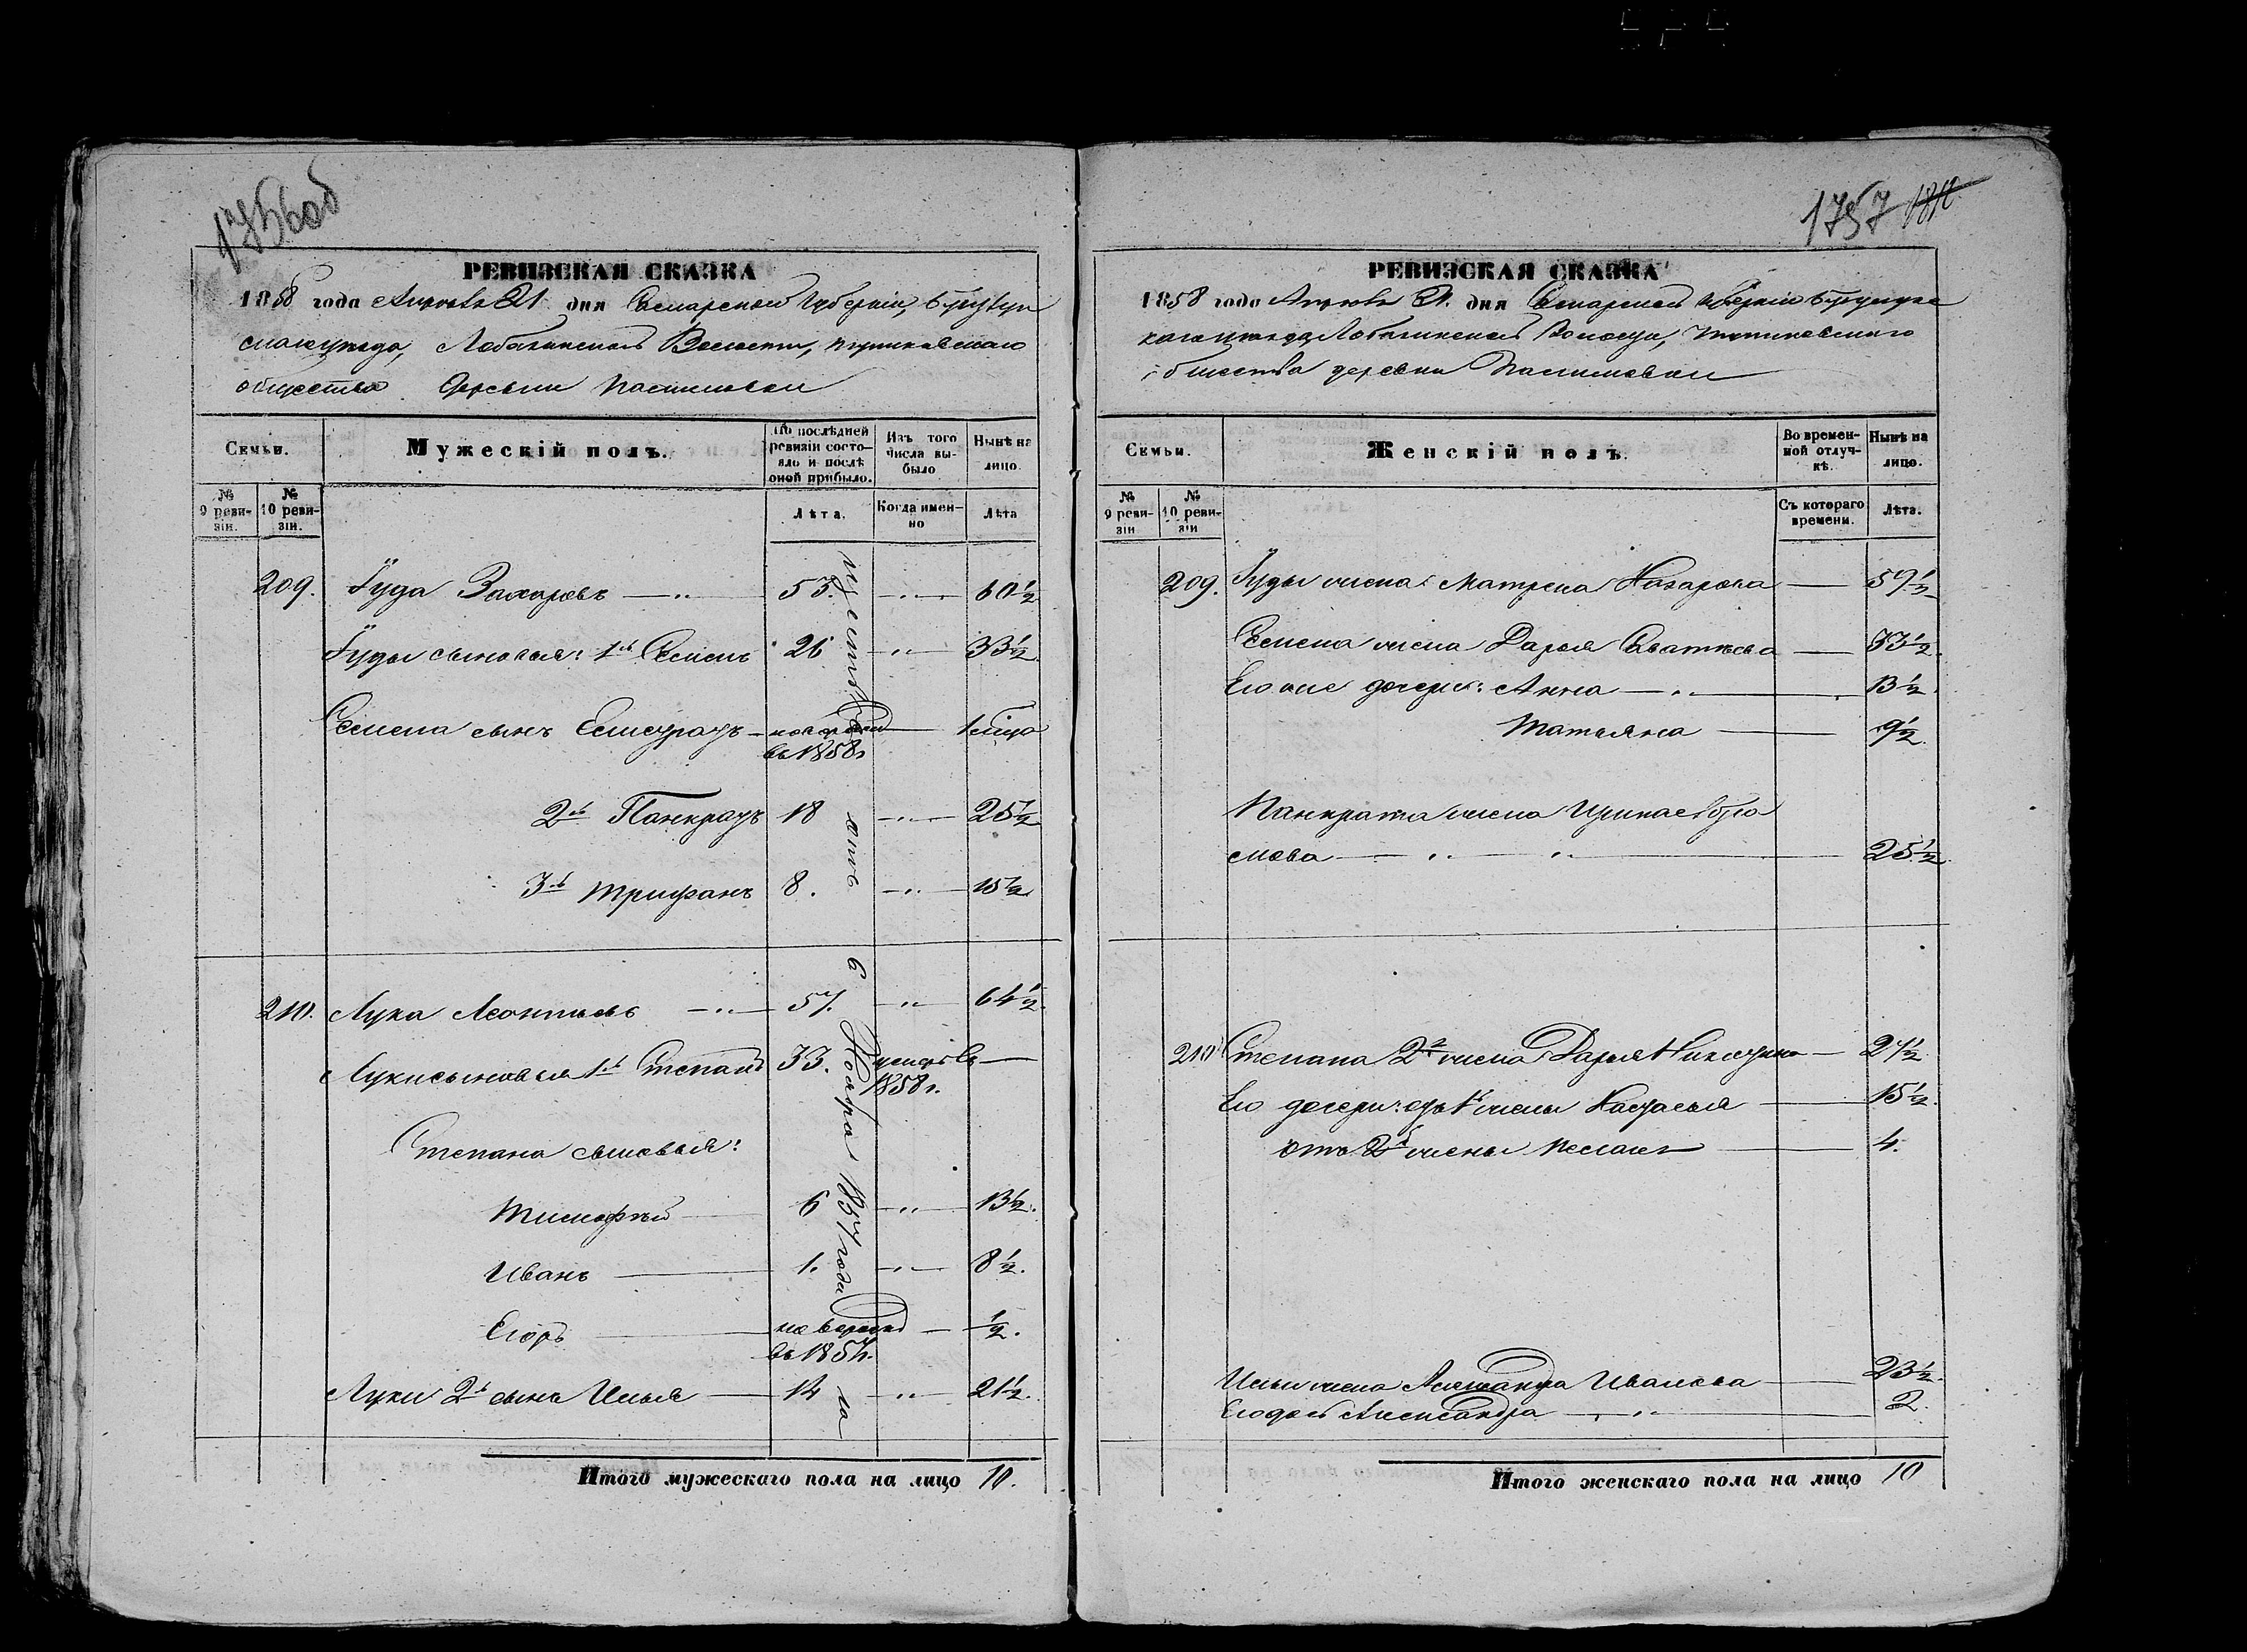 1756 об
РЕВИЗСКАЯ СКАЗКА
1858 года Апреля 21 дня Самарской Губерніи, Бузулук
скаго уезда, Лобазинской Волости,
общества Деревни
Семьи.
Мужескій полъ.
По послѣдней ревизіи состояло и послѣ оной прибыло.
Изъ того числа выбыло
Нынѣ на лицо.
№ 9 ревизіи.
№ 10 ревизіи.
Лѣта.
Когда именно
Лѣта
209. Іуда Захаровъ 53. 60½
Іуды сыновья: 1й Семенъ 26 33½
Семена сынъ новорожд 1
въ 1858г
2й Панкратъ 18 25½
3й Трифанъ 8. 15½
210. Лука Леонтьевъ 57. 64½
Луки сыновья 1й Степанъ 33. умеръ въ
1858 г.
Степана сыновья:
Тимофей 6 13½.
Иванъ 1. 8½.
Егоръ новорожд ½.
въ 1857г.
Луки 2й сынъ Илья 14 21½.
Ноября 1857 года
Итого мужескаго пола на лицо 10.
1757 1810
РЕВИЗСКАЯ СКАЗКА
1858 года Апреля 21. дня Самарской Губерніи Бузулукс
каго уезда Лобазинской Волости,
общества деревни
Семьи.
Женскій полъ.
Во временной отлучкѣ.
Нынѣ на лицо.
№ 9 ревизіи
№ 10 ревизіи
Съ котораго времени.
Лѣта.
209. Іуды жена Матрена Назарова 59½
Семена жена Дарья 33½.
Его же дочери: Анна 13½.
Татьяна 9½.
Панкрата жена Ирина
25½.
210 Степана 2я жена Дарья 27½
Его дочери: отъ 1й жены Настасья 15½.
отъ 2й жены 4.
Ильи жена Иванова 23½.
Его дочь Александра 2.
Итого женскаго пола на лицо 10